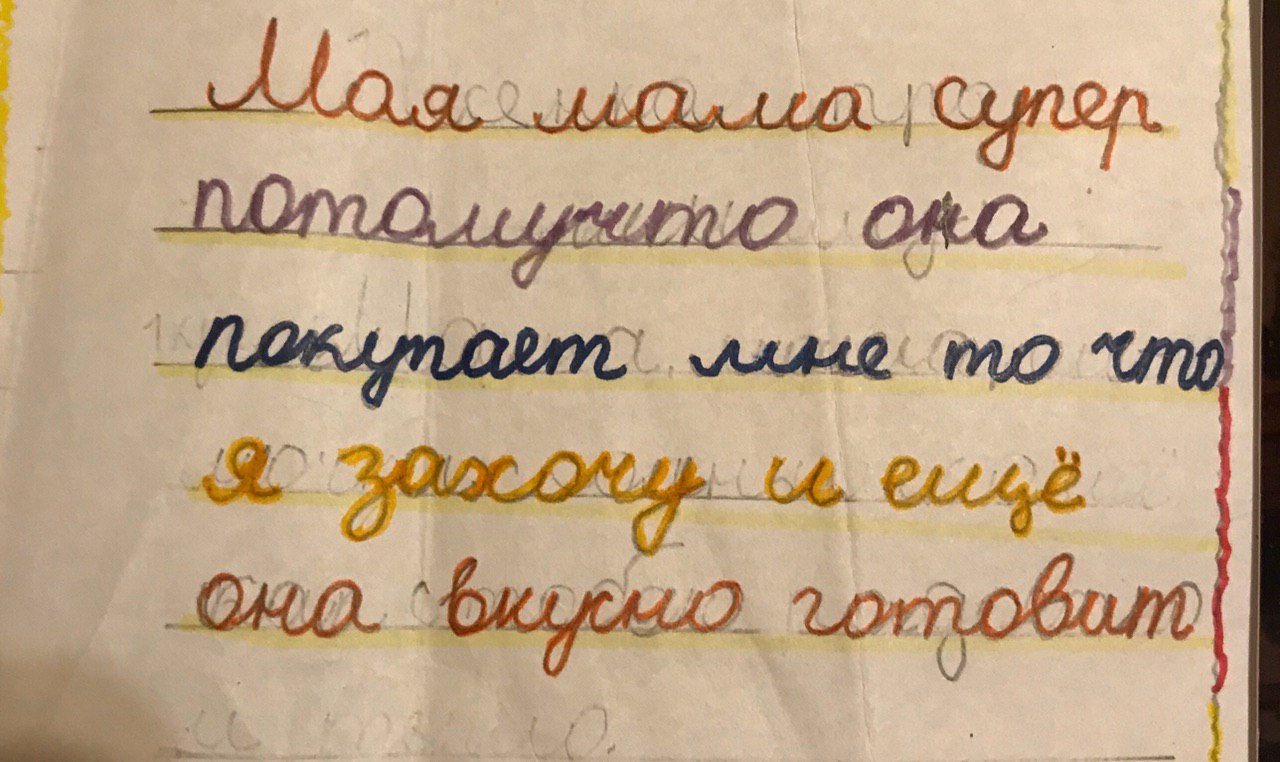 Мая мама супер
потомучто она
покупает мне то что
я захочу и ещё
она вкусно готовит